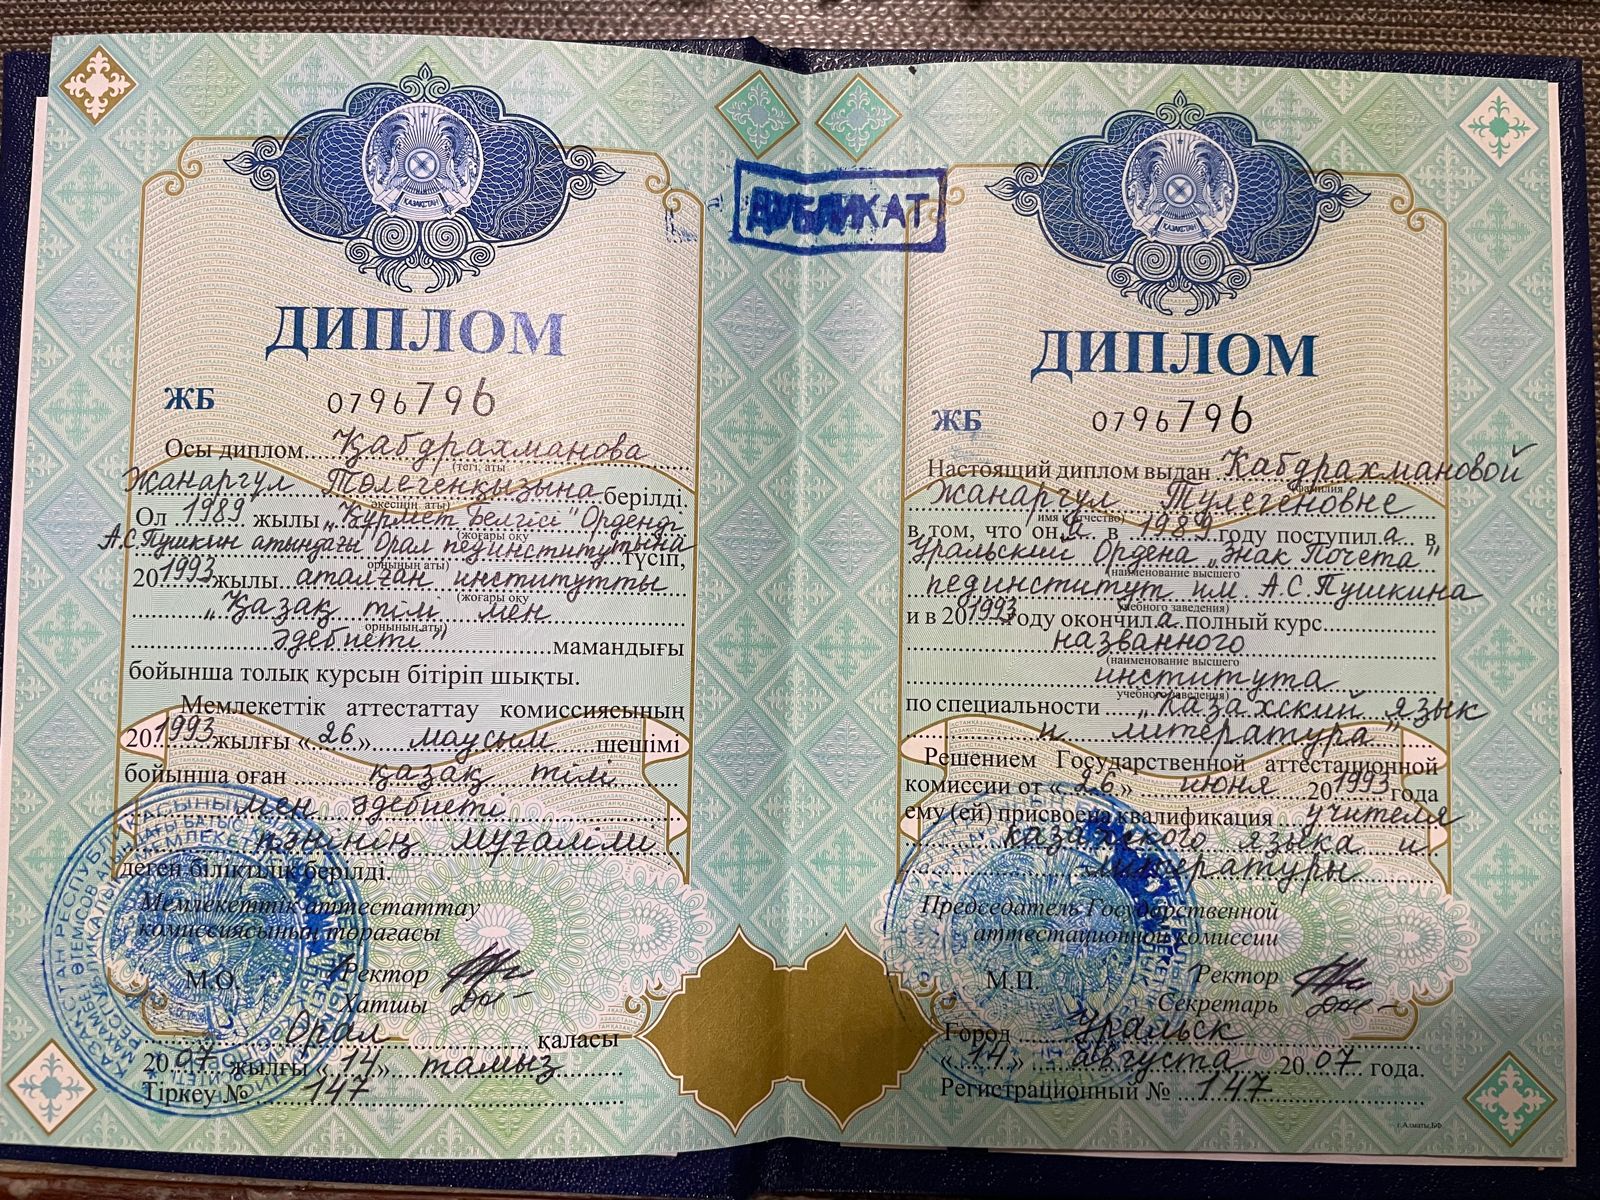 ДУБЛИКАТ
ҚАЗАҚСТАН
ДИПЛОМ
ЖБ 0796796
Осы диплом Қабдрахманова
(тегі, аты
Жанаргүл Төлегенқызына берілді.
әкесінің аты)
Ол 1989 жылы „Құрмет Белгісі" Орденді
(жоғары оқу
А.С.Пушкин атындағы Орал пединститутына түсіп,
орнының аты)
201993 жылы аталған институтты
(жоғары оқу
„Қазақ тілі мен
орнының аты)
әдебиеті" мамандығы
бойынша толық курсын бітіріп шықты.
Мемлекеттік аттестаттау комиссиясының
201993 жылғы «26» маусым шешімі
бойынша оған қазақ тілі
мен әдебиеті
пәнінің мұғалімі
деген біліктілік берілді.
Мемлекеттік аттестаттау
комиссиясының төрағасы
М.О. Ректор
Хатшы
Орал қаласы
2007 жылғы «14» тамыз
Тіркеу № 147
ҚАЗАҚСТАН
ДИПЛОМ
ЖБ 0796796
Настоящий диплом выдан Кабдрахмановой
(фамилия
Жанаргул Тулегеновне
имя отчество)
в том, что он а в 1989 году поступил а в
Уральский Ордена „Знак Почета"
(наименование высшего
пединститут им. А.С.Пушкина
учебного заведения)
и в 201993 году окончил а полный курс
названного
(наименование высшего
института
учебного заведения)
по специальности „Казахский язык
и литература"
Решением Государственной аттестационной
комиссии от «26» июня 201993 года
ему (ей) присвоена квалификация учителя
казахского языка и
литературы
Председатель Государственной
аттестационной комиссии
М.П. Ректор
Секретарь
Город Уральск
«14» августа 2007 года.
Регистрационный № 147
г.Алматы,БФ